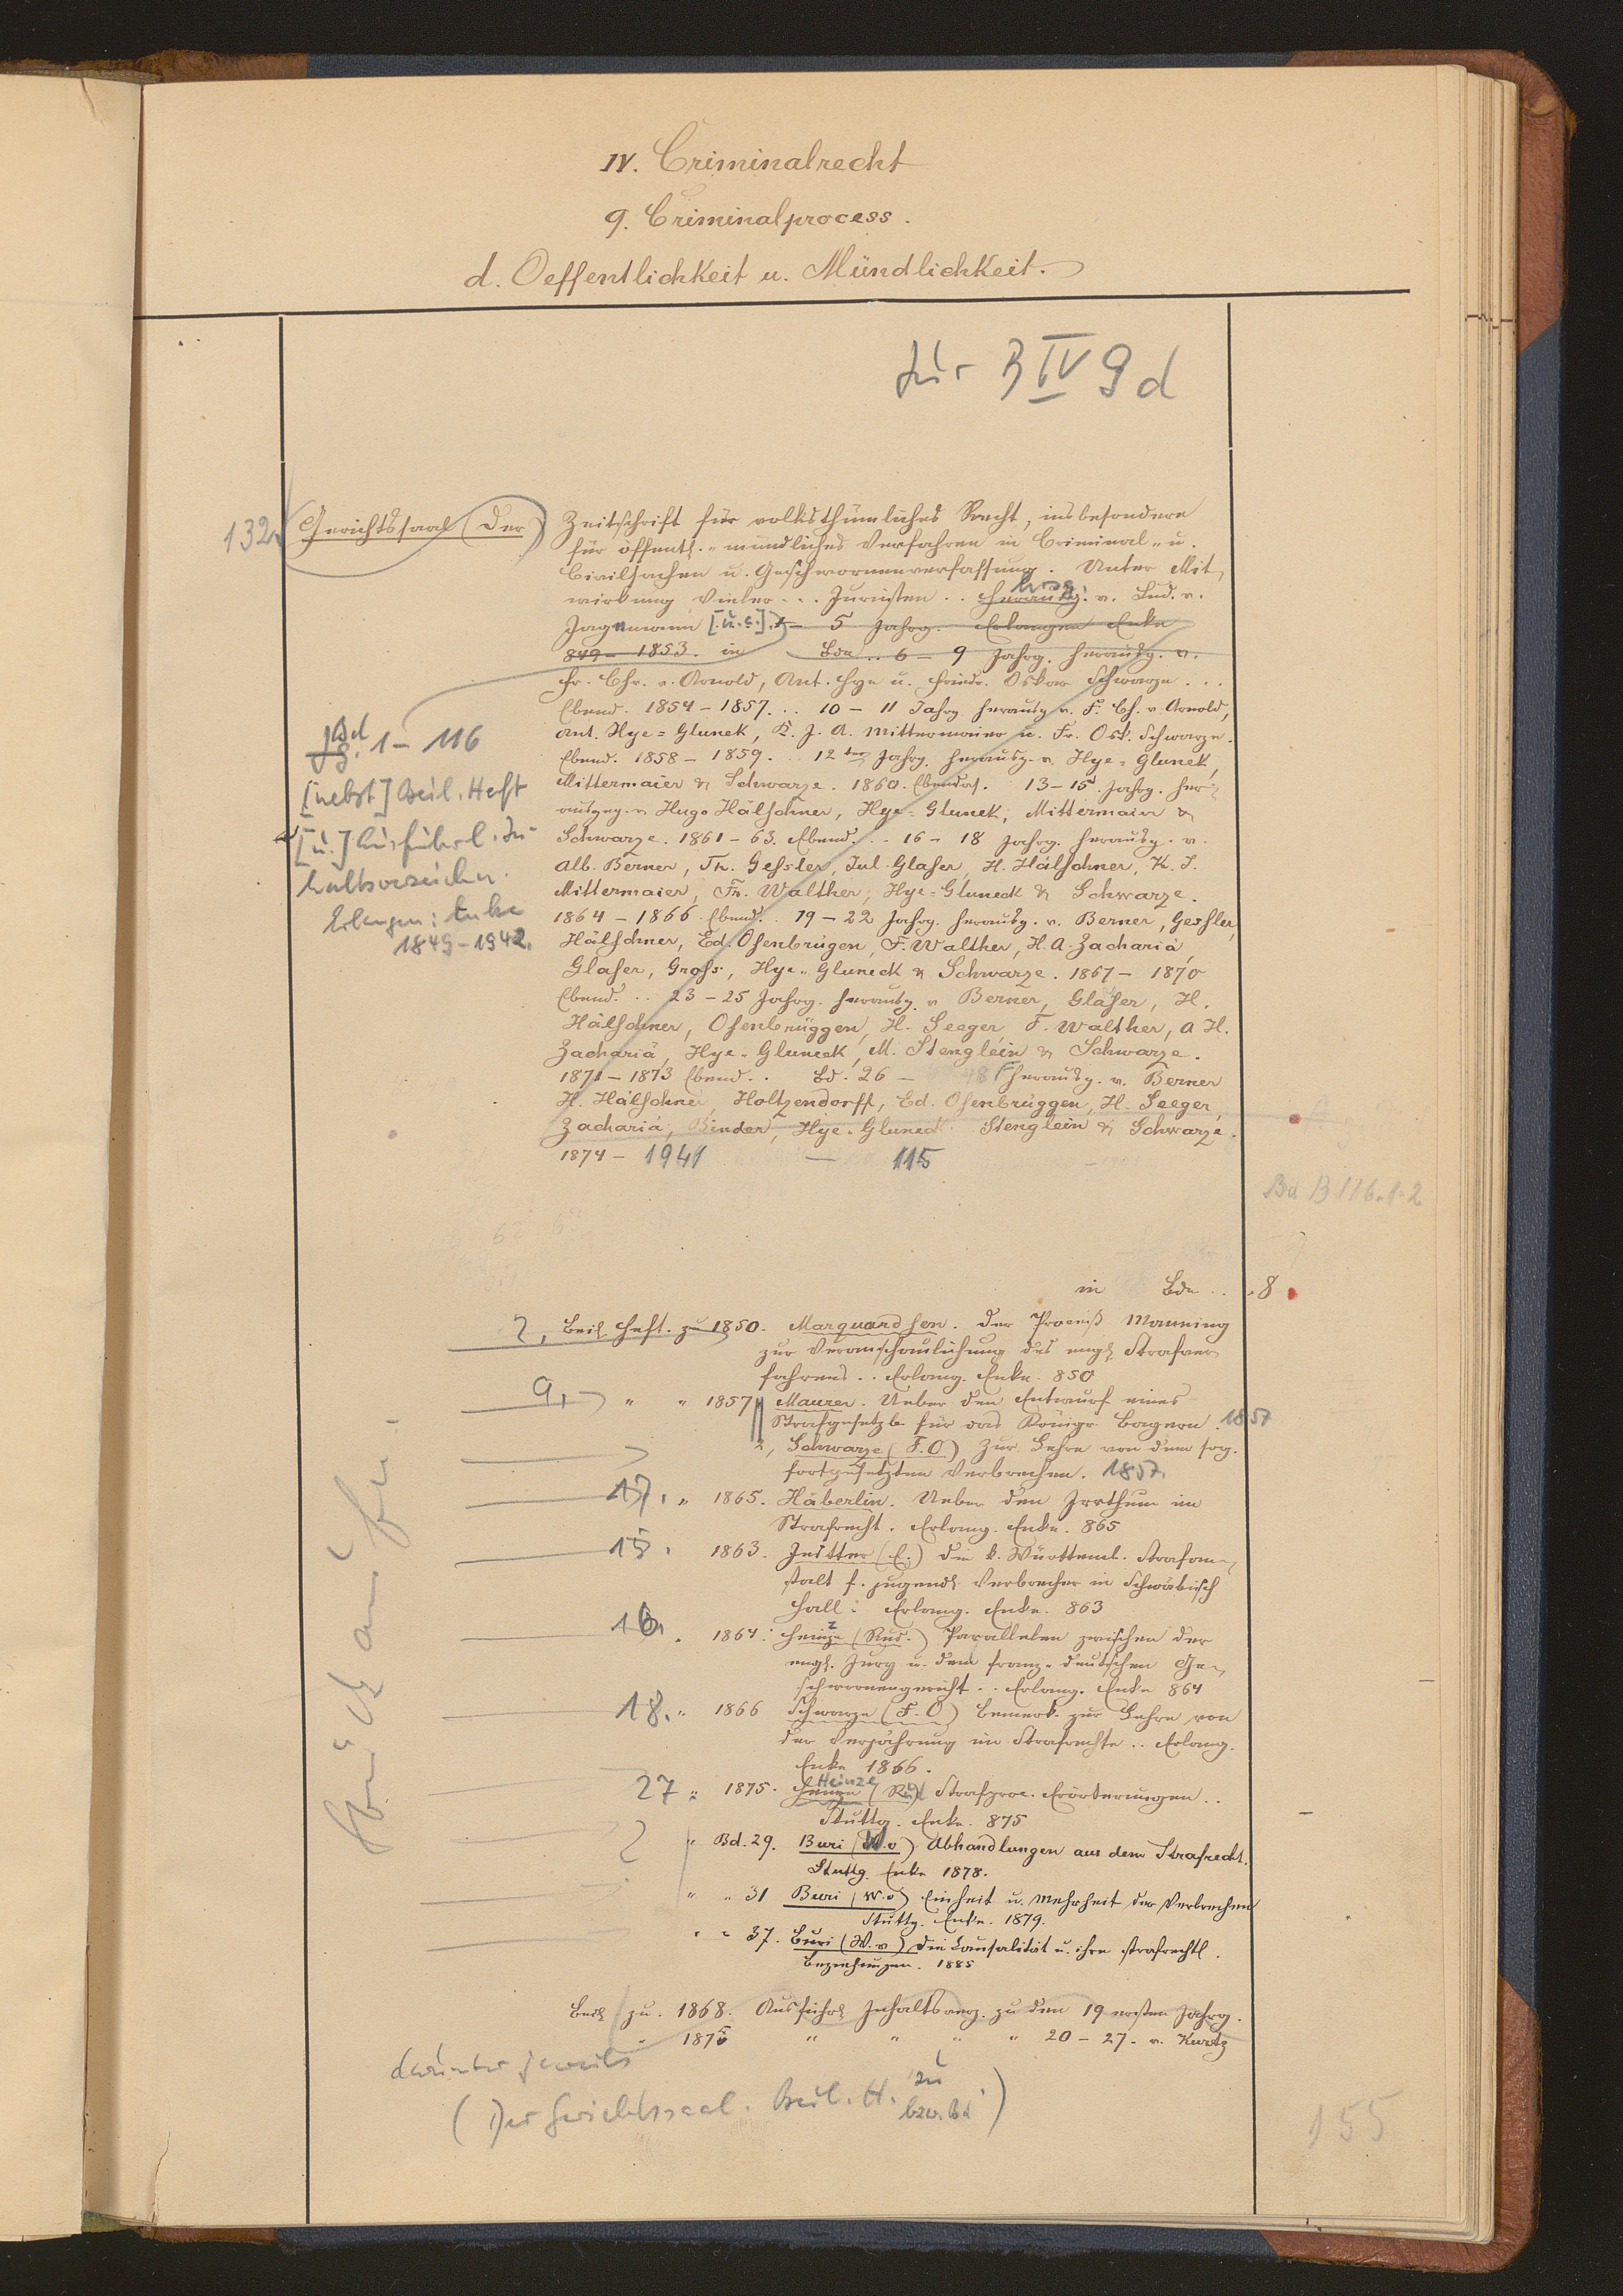 IV. Criminalrecht
9. Criminalprocess.
d. Oeffentlichkeit u. Mündlichkeit.
für B IV 9 d
132. Gerichtssaal (Der) Zeitschrift für volksthümliches Recht, insbesondere
für öffentl. u mündliches Verfahren in Criminal- u.
Civilsachen u. Geschwornenverfassung. Unter Mit-
wirkung Vieler ... Juristen .. herausg. hrsg. v. Lud. v.
Jagemann [u.a.] 1 – 5 Jahrg. Erlangen Enke
849 – 1853. in Bde .. 6 – 9 Jahrg. herausg. v.
Fr. Chr. v. Arnold, Ant. Hye u. Friedr. Oskar Schwarze ...
Ebend. 1854 – 1857. .. 10 – 11 Jahrg herausg v. F. Ch. v. Arnold,
Ant. Hye=Glunek, K. J. A. Mittermaier u. Fr. Osk. Schwarze.
Ebend. 1858 – 1859. .. 12ter Jahrg. herausg. v. Hye=Glunek,
Mittermaier & Schwarze. 1860. Ebendas. 13 – 15 Jahrg. her-
ausgeg. v Hugo Hälschner, Hye=Glunek, Mittermaier &
Schwarze. 1861 – 63. Ebend. .. 16 – 18 Jahrg. herausg. v.
Alb. Berner, Th. Gessler, Jul. Glaser, H. Hälschner, K. J.
Mittermaier, Fr. Walther, Hye=Gluneck & Schwarze.
1864 – 1866. Ebend. .. 19 – 22 Jahrg. herausg. v. Berner, Gessler,
Hälschner, Ed. Osenbrügen, F. Walther, H. A. Zachariä,
Glaser, Gross, Hye=Gluneck & Schwarze. 1867 – 1870
Ebend. .. 23 – 25 Jahrg. herausg. v Berner, Glaser, H.
Hälschner, Osenbrüggen, H. Seeger, F. Walther, A H.
Zachariä, Hye=Gluneck, M. Stenglein & Schwarze.
1871 – 1873 Ebend. .. Bd. 26 – 48 herausg. v. Berner
H. Hälschner, Holtzendorff, Ed. Osenbrüggen, H. Seeger,
Zachariä, Binder, Hye=Gluneck Stenglein & Schwarze.
1874 – 1941 — 115
Bd 1 – 116
[nebst] Beil. Heft
[u.] Ausführl. In-
haltsverzeichn.
Erlangen: Enke
1849–1942.
Bd B 116.1-2
in Bde .. . 8
2, Beil. Heft. zu 1850. Marquardsen. Der Process Manning
zur Veranschaulichung des engl. Strafver-
fahrens .. Erlang. Enke. 850
9, " " 1857 Maurer. Ueber den Entwurf eines
Strafgesetzb. für das Königr. Bayern. 1857
2, Schwarze (F. O) Zur Lehre von dem sog.
fortgesetzten Verbrechen. 1857.
17. " 1865. Häberlin. Ueber den Irrthum im
Strafrecht. Erlang. Enke. 865
15. 1863. Jeitter (E.) Die k. Württemb. Strafan-
stalt f. jugendl. Verbrecher in Schwäbisch
Hall. Erlang. Enke. 863
16. 1864. Heinze (Rud.) Parallelen zwischen der
engl. Jury u. dem franz.-deutschen Ge-
schwornengericht .. Erlang. Enke 864
18. " 1866 Schwarze (F. O) Bemerk. zur Lehre von
der Verjährung im Strafrechte .. Erlang.
Enke 1866.
27 " 1875. Heinze (Rud) Strafproc. Erörterungen ..
Stuttg. Enke. 875
" Bd. 29. Buri (M.v) Abhandlungen aus dem Strafrecht.
Stuttg. Enke 1878.
" " 31 Buri (W.v) Einheit u. Mehrheit der Verbrechen
Stuttg. Enke. 1879.
" " 37. Buri (W. v) Die Causalität u. ihre strafrechtl.
Beziehungen. 1885
Beil. zu. 1868. Ausführl Inhaltsverz. zu den 19 ersten Jahrg.
" 1875 " " " " 20 – 27. v. Kurtz
darunter jeweils
(Der Gerichtssaal. Beil. H. zu bzw. Bd.)
155